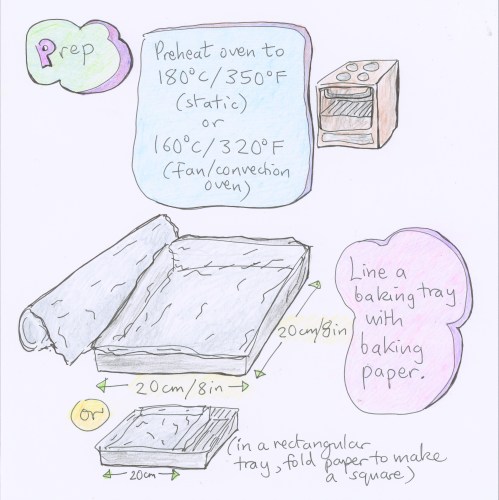 Prep
Preheat oven to
180°C/350°F
(static)
or
160°C/320°F
(fan/convection
oven)
Line a
baking tray
with
baking
paper.
20cm/8in
20cm/8in
or
20cm
(in a rectangular
tray, fold paper to make
a square)